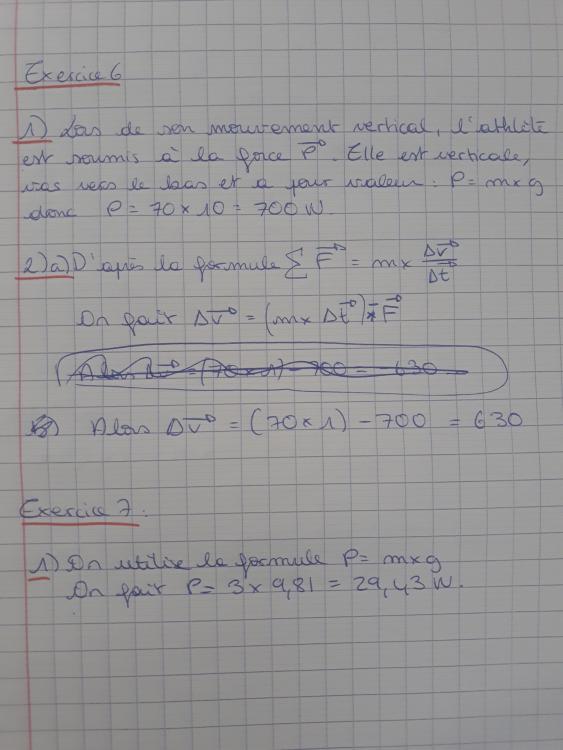 Exercice 6
1) Lors de son mouvement vertical, l'athlète
est soumis à la force P⃗. Elle est verticale,
vras vers le bas et a pour valeur : P = m×g
donc P = 70 × 10 = 700 N.
2)a) D'après la formule ∑ F⃗ = m× Δv⃗/Δt⃗
On fait Δv⃗ = (m× Δt⃗) F⃗
Alors Δv⃗ = (70×1) - 700 = 630
Alors Δv⃗ = (70×1) - 700 = 630
Exercice 7 :
1) On utilise la formule P = m×g
On fait P = 3 × 9,81 = 29,43 N.